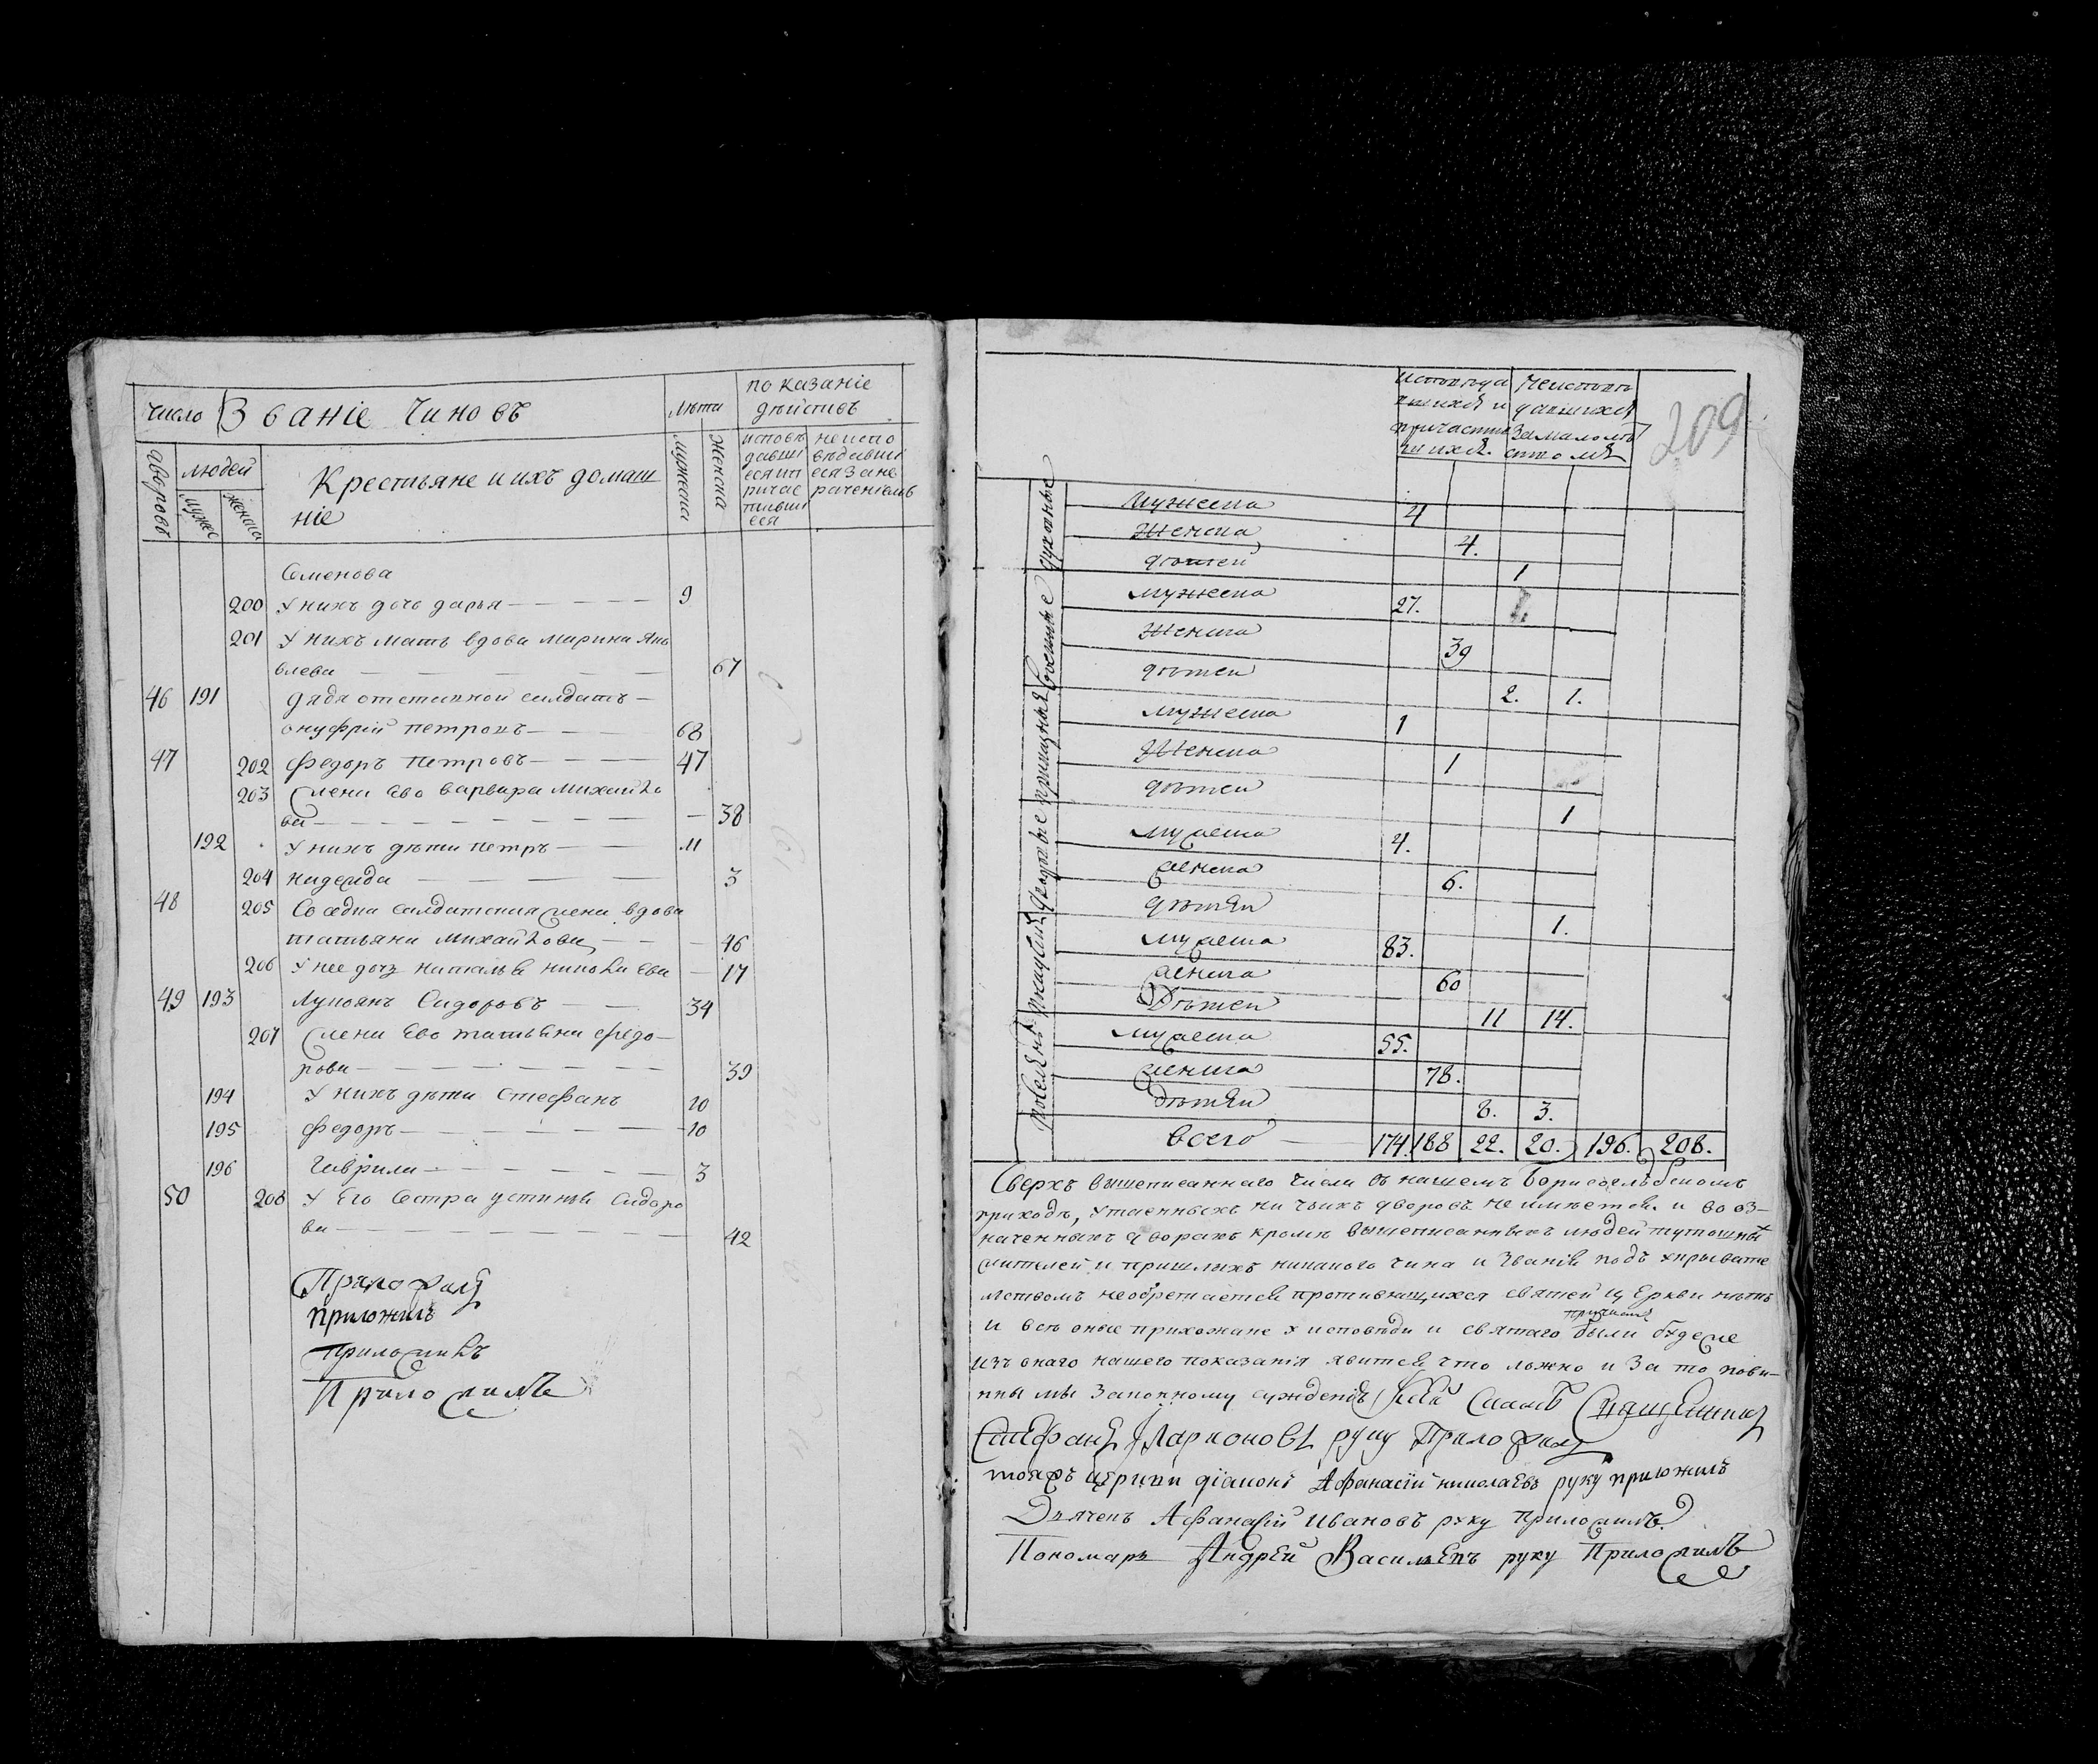 число Званіе чиновъ лѣта показаніе
дѣйствъ
дворовъ людей мужеска женска
мужес женска
Крестьяне и ихъ домаш
ніе
исповѣ
давші
еся и п
ричас
тивши
еся
не испо
вѣдавші
еся за не
раченіемъ
Семенова
200 у нихъ дочь дарья 9
201 у нихъ мать вдова марина Яко
влева 67
46 191 дядя отставной салдатъ
онуфрій петровъ 68
47 202 федоръ петровъ 47
203 жена ево варвара михайло
ва 38
192 у нихъ дѣти петръ 11
204 надежда 3
48 205 Соседка салдатская жена вдова
татьяна михайлова 46
206 у нее дочь наталья николаева 17
49 193 Лукоянъ Сидоровъ 34
207 жена ево татьяна федо
рова 39
194 у нихъ дѣти Стефанъ 10
195 федоръ 10
196 гаврила 3
50 208 у Его Сестра устинья Сидоро
ва 42
Приложилъ
приложилъ
Приложилъ
Приложилъ
209
исповеда
вшихся и
причасти
шихся
неисповѣ
давшихся
за малолѣт
ство мъ
духовные
мужеска 4
женска 4.
дѣтей 1
военные
мужеска 27.
женска 39
дѣтей 2. 1.
приказныя
мужеска 1
женска 1
дѣтей 1
дворовые
мужеска 4.
женска 6.
дѣтей 1.
мужеска 83.
женска 60
Дѣтей 11 14.
мужеска 55.
женска 78.
дѣтей 8. 3.
всего 174. 188 22. 20. 196. 208.
Сверхъ вышеписаннаго числа въ нашемъ Борисоглѣбскомъ
приходѣ, утаенныхъ ни чьихъ дворовъ не имѣется. и во оз
наченныхъ дворахъ кромѣ вышеписанныхъ людей тутошныхъ
жителей и пришлыхъ никакого чина и званія подъ укрывате
льствомъ необретается противящихся святей церкви нѣтъ
и всѣ оные прихожане у исповѣди и святаго причастія были будеже
изъ онаго нашего показанія явится что ложно и за то пови
нны мы законному сужденію Священникъ
Стефанъ Ларионовъ руку Приложилъ
тояжъ церкви діаконъ Афанасій николаевъ руку приложилъ
Дьячекъ Афанасій Ивановъ руку приложилъ.
Пономарь Андрей Васильевъ руку Приложилъ